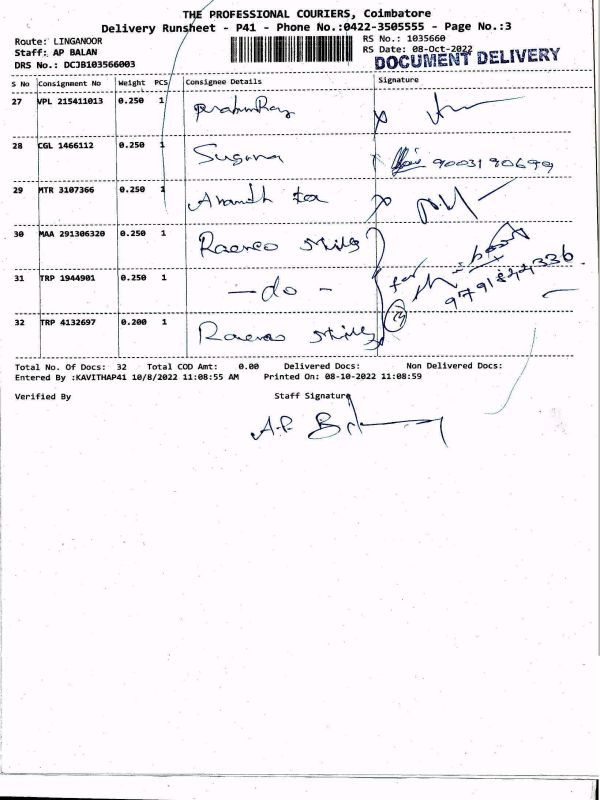 THE PROFESSIONAL COURIERS, Coimbatore
Delivery Runsheet - P41 - Phone No.:0422-3505555 - Page No.:3
Route: LINGANOOR
RS No.: 1035660
Staff: AP BALAN
RS Date: 08-Oct-2022
DRS No.: DCJB103566003
DOCUMENT DELIVERY
S No Consignment No Weight PCS Consignee Details Signature
27 VPL 215411013 0.250 1
28 CGL 1466112 0.250 1 Suguna 9003190699
29 MTR 3107366 0.250 1
30 MAA 291306320 0.250 1 Mills
31 TRP 1944901 0.250 1 -do- for 9791844336
32 TRP 4132697 0.200 1 Mills
Total No. Of Docs: 32 Total COD Amt: 0.00 Delivered Docs: Non Delivered Docs:
Entered By :KAVITHAP41 10/8/2022 11:08:55 AM Printed On: 08-10-2022 11:08:59
Verified By Staff Signature
A.P.